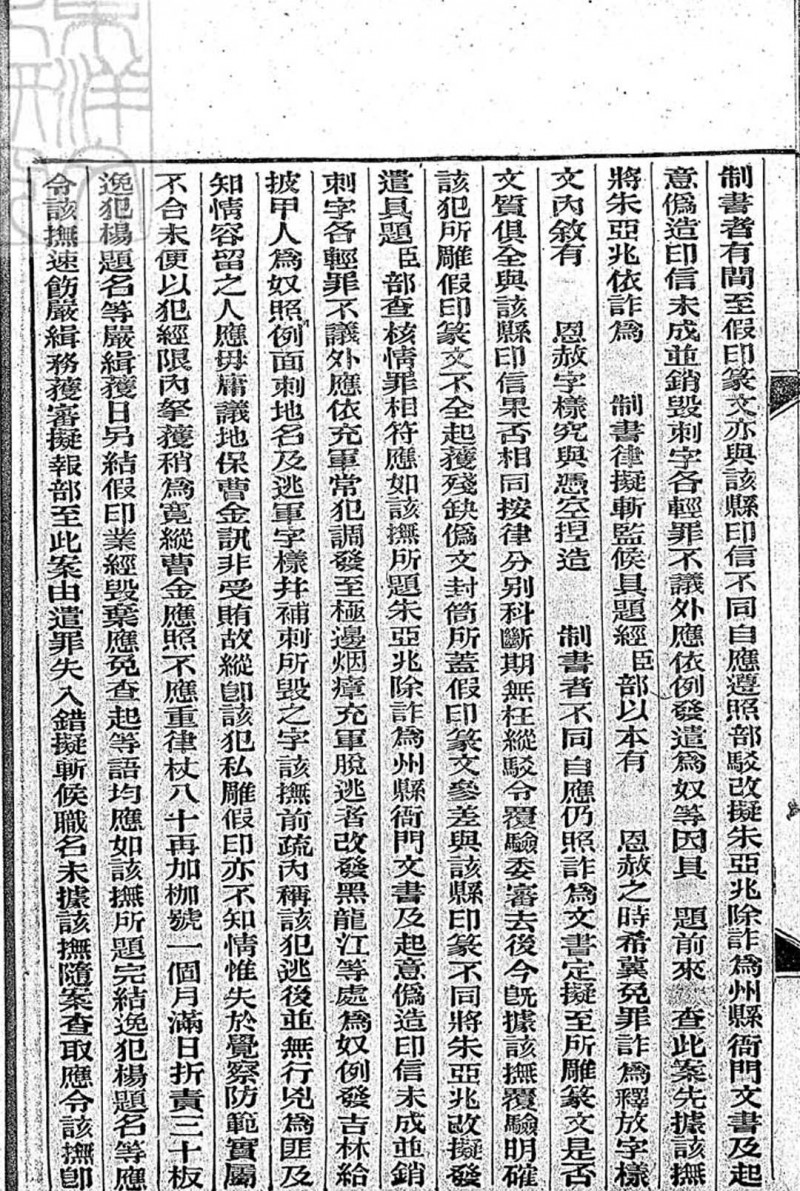 制書者有間至假印篆文亦與該縣印信不同自應遵照部駁改擬朱亞兆除詐爲州縣衙門文書及起
意僞造印信未成並銷毀刺字各輕罪不議外應依例發遣爲奴等因具　題前來　查此案先據該撫
將朱亞兆依詐爲　制書律擬斬監候具題經臣部以本有　恩赦之時希冀免罪詐爲釋放字樣
文內敘有　恩赦字樣究與憑空捏造　制書者不同自應仍照詐爲文書定擬至所雕篆文是否
文質俱全與該縣印信果否相同按律分别科斷期無枉縱駁令覆驗委審去後今旣據該撫覆驗明確
該犯所雕假印篆文不全起獲殘缺僞文封筒所蓋假印篆文參差與該縣印篆不同將朱亞兆改擬發
遣具題臣部查核情罪相符應如該撫所題朱亞兆除詐爲州縣衙門文書及起意僞造印信未成並銷
刺字各輕罪不議外應依充軍常犯調發至極邊烟瘴充軍脫逃者改發黑龍江等處爲奴例發吉林給
披甲人爲奴照例面刺地名及逃軍字樣幷補刺所毀之字該撫前疏內稱該犯逃後並無行兇爲匪及
知情容留之人應毋庸議地保曹金訊非受賄故縱卽該犯私雕假印亦不知情惟失於覺察防範實屬
不合未便以犯經限內拏獲稍爲寬縱曹金應照不應重律杖八十再加枷號一個月滿日折責三十板
逸犯楊題名等嚴緝獲日另結假印業經毀棄應免查起等語均應如該撫所題完結逸犯楊題名等應
令該撫速飭嚴緝務獲審擬報部至此案由遣罪失入錯擬斬候職名未據該撫隨案查取應令該撫卽